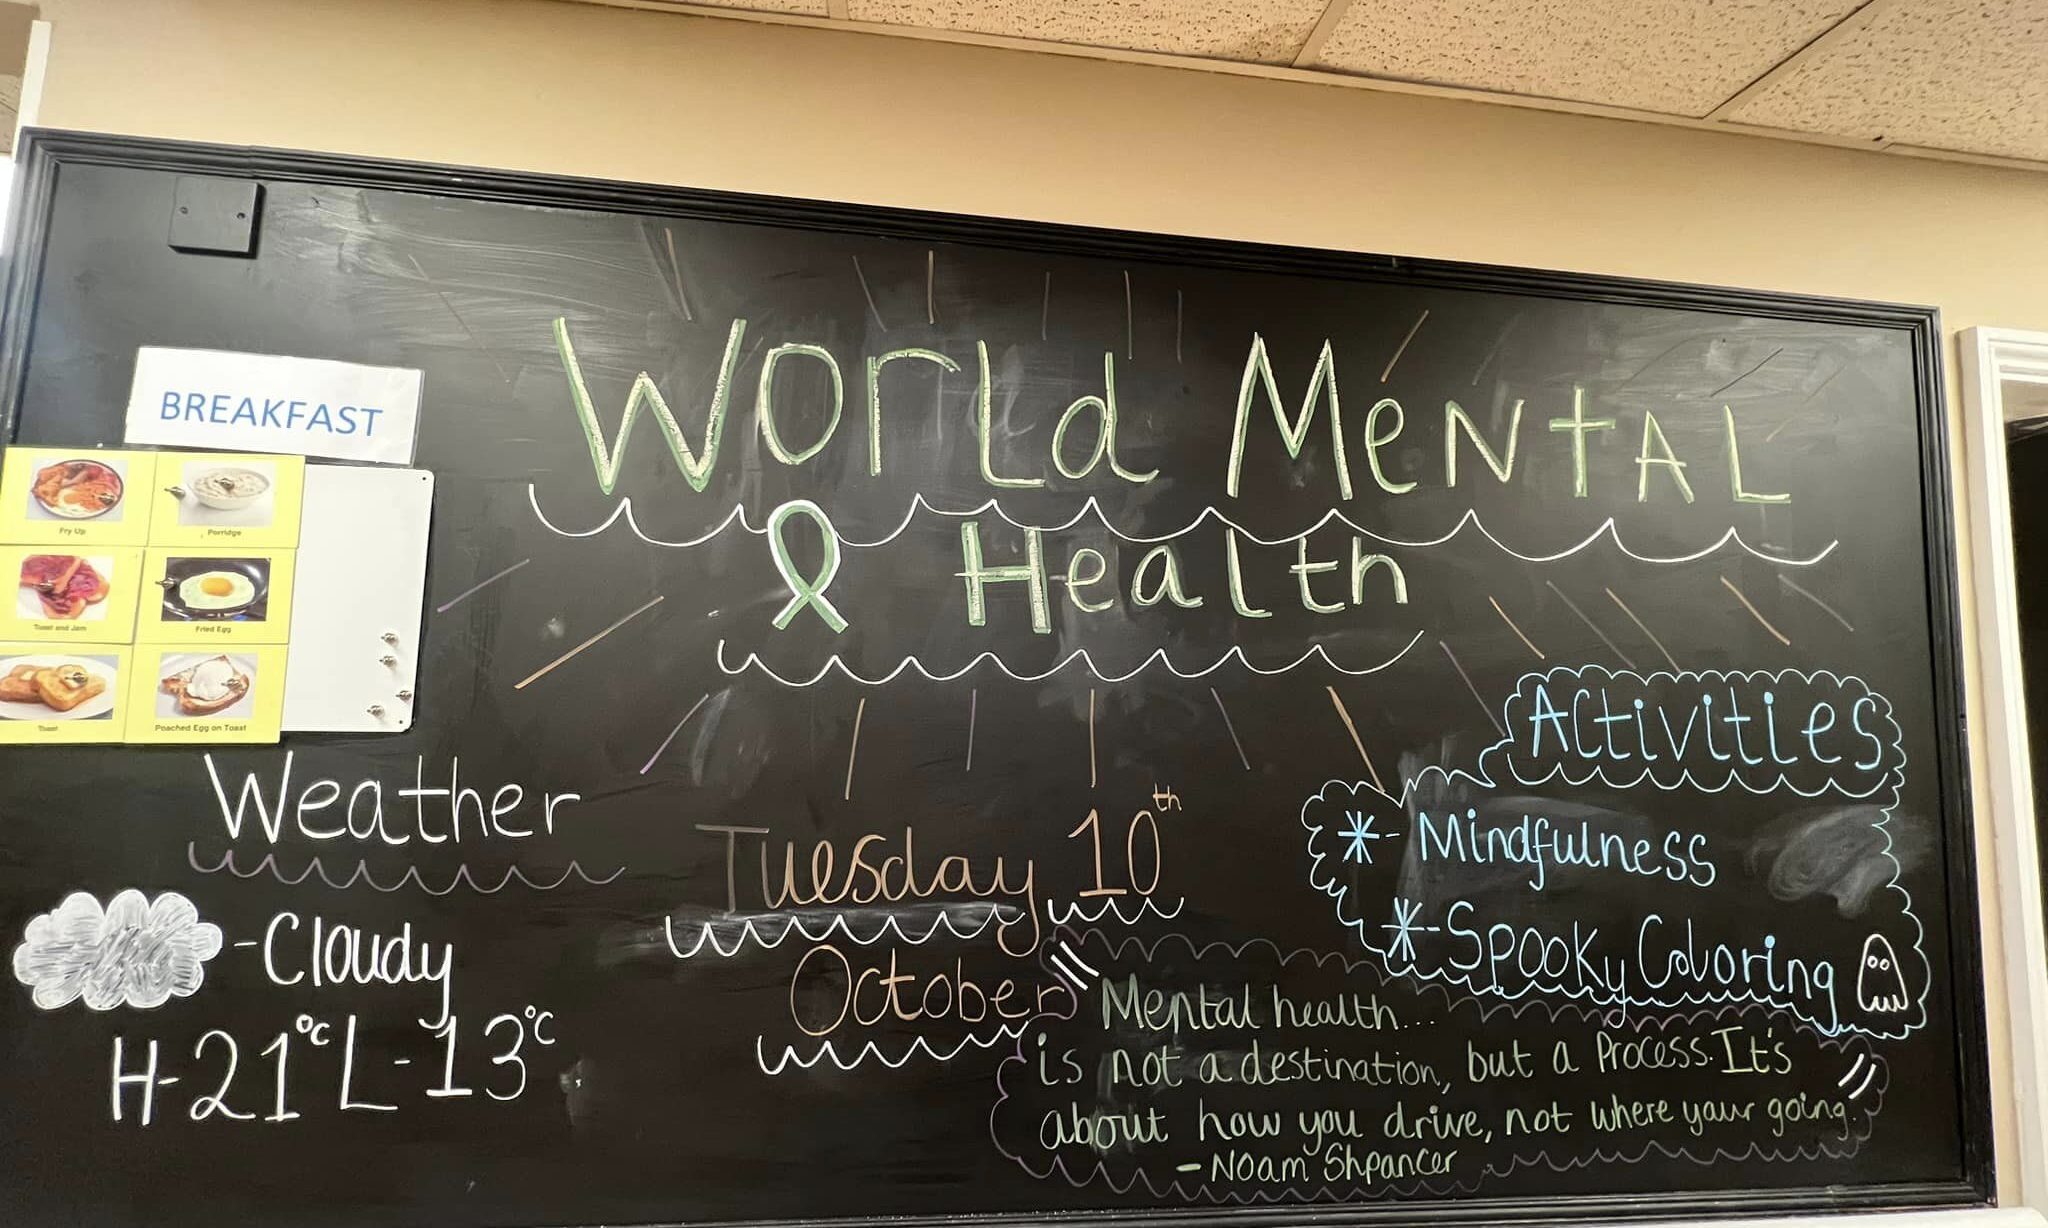 World Mental
Health
BREAKFAST
Fry Up
Porridge
Toast and Jam
Fried Egg
Toast
Poached Egg on Toast
Weather
-Cloudy
H-21°C L-13°C
Tuesday 10th
October
Activities
*- Mindfulness
*- Spooky Coloring
" Mental health...
is not a destination, but a process. It's
about how you drive, not where your going. "
- Noam Shpancer